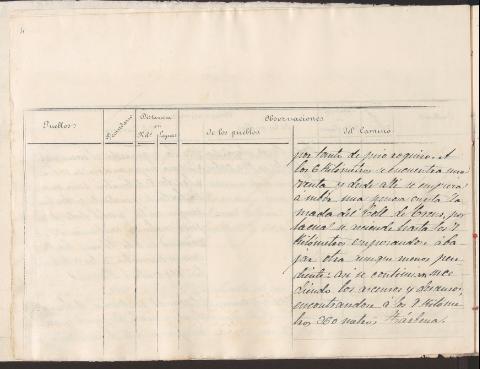 4
Pueblos
Vecindario
Distancia
en
Kils. Leguas
Observaciones
De los pueblos
Del Camino
por tanto de piso seguro. A
los 6 Kilómetros se encuentra una
venta y desde allí se empieza
á subir una penosa cuesta lla
mada del Coll de Creus, por
la cual se asciende hasta los 7
Kilómetros empezando á ba-
jar otra aunque menos pen
diente: así se continuan
los ascensos y descensos
encontrandose á los 9 Kilóme
tros 260 metros Tárbena.